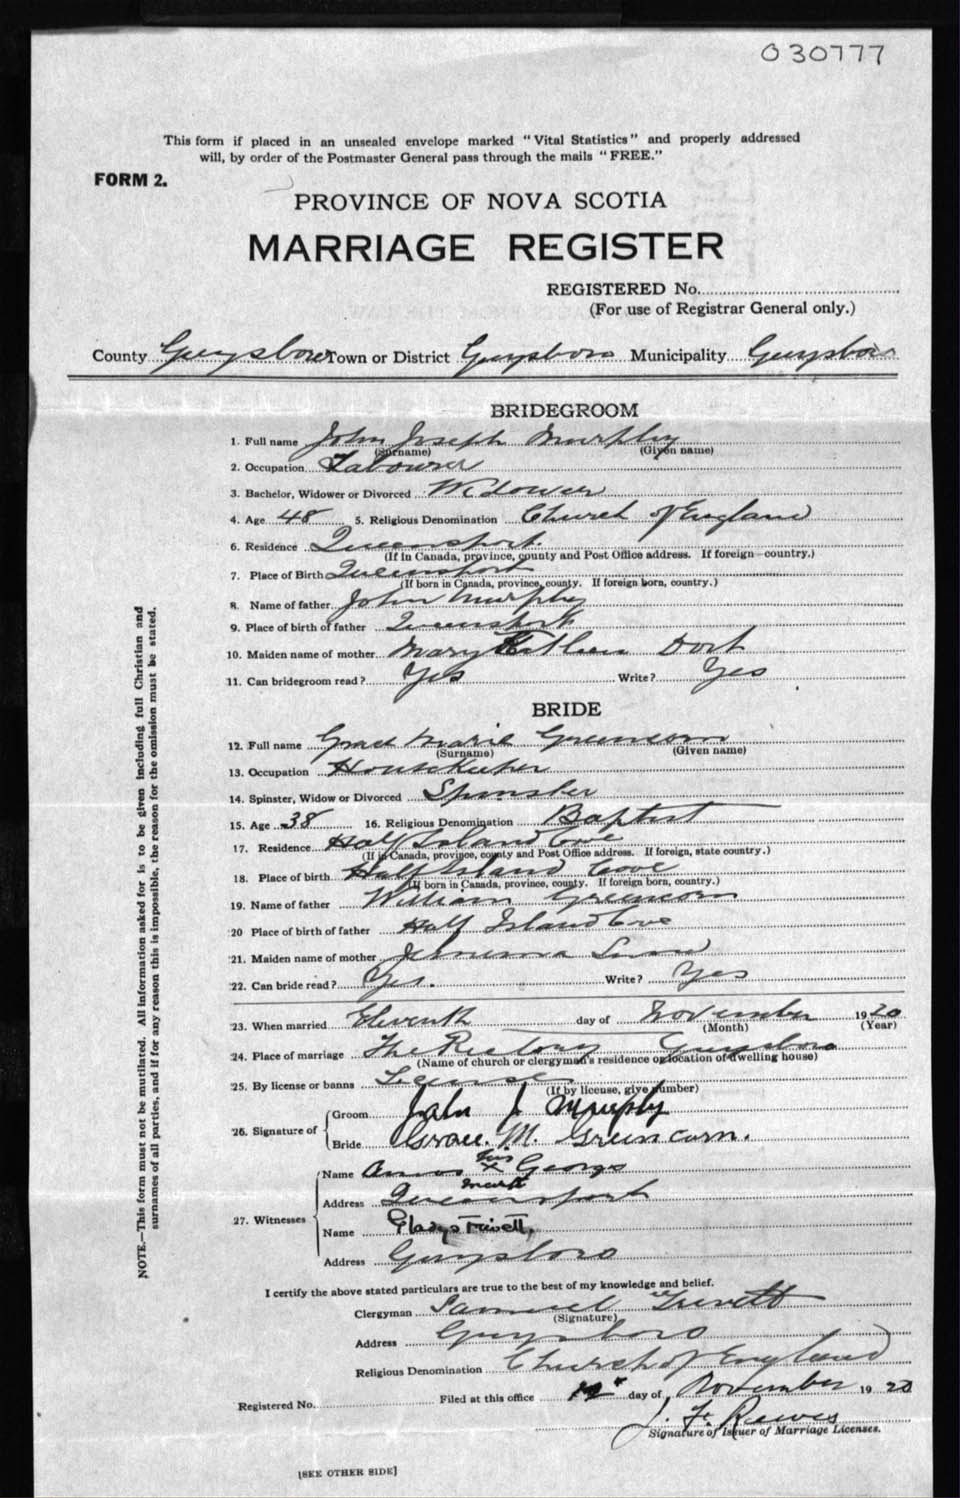 030777
This form if placed in an unsealed envelope marked "Vital Statistics" and properly addressed
will, by order of the Postmaster General pass through the mails "FREE."
FORM 2.
PROVINCE OF NOVA SCOTIA
MARRIAGE REGISTER
REGISTERED No.
(For use of Registrar General only.)
County Guysboro Town or District Guysboro Municipality Guysboro
BRIDEGROOM
1. Full name John Joseph Murphy
(Surname) (Given name)
2. Occupation Labourer
3. Bachelor, Widower or Divorced Widower
4. Age 48 5. Religious Denomination Church of England
6. Residence Queensport
(If in Canada, province, county and Post Office address. If foreign—country.)
7. Place of Birth Queensport
(If born in Canada, province, county. If foreign born, country.)
8. Name of father John Murphy
9. Place of birth of father Queensport
10. Maiden name of mother Mary Dort
11. Can bridegroom read? Yes Write? Yes
BRIDE
12. Full name Grace Marie Greencorn
(Surname) (Given name)
13. Occupation Housekeeper
14. Spinster, Widow or Divorced Spinster
15. Age 38 16. Religious Denomination Baptist
17. Residence Half Island Cove
(If in Canada, province, county and Post Office address. If foreign, state country.)
18. Place of birth Half Island Cove
(If born in Canada, province, county. If foreign born, country.)
19. Name of father William Greencorn
20 Place of birth of father Half Island Cove
21. Maiden name of mother
22. Can bride read? Yes. Write? Yes
23. When married Eleventh day of November 1920
(Month) (Year)
24. Place of marriage The Rectory Guysboro
(Name of church or clergyman's residence or location of dwelling house)
25. By license or banns License
(If by license, give number)
26. Signature of
Groom John J Murphy
Bride Grace. M. Greencorn.
27. Witnesses
Name Amos his x mark George
Address Queensport
Name Gladys Trivett,
Address Guysboro
I certify the above stated particulars are true to the best of my knowledge and belief.
Clergyman Samuel Trivett
(Signature)
Address Guysboro
Religious Denomination Church of England
Registered No. Filed at this office day of November 1920
Signature of Issuer of Marriage Licenses.
[SEE OTHER SIDE]
NOTE.—This form must not be mutilated. All information asked for is to be given including full Christian and
surnames of all parties, and if for any reason this is impossible, the reason for the omission must be stated.